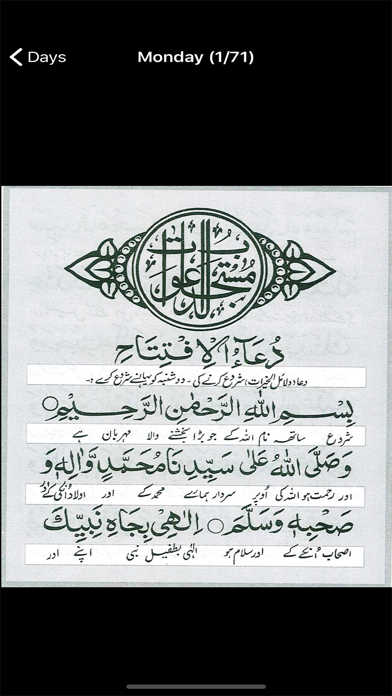 Days
Monday (1/71)
مستجاب الدعوات
دُعَاءُ الْاِفْتِتَاحِ
دعا دلائل الخیرات شروع کرنے کی - دوشنبہ کو یہاں سے شروع کرے :-
بِسْمِ اللهِ الرَّحْمٰنِ الرَّحِيْمِ
شروع ساتھ نام اللہ کے جو بڑا بخشنے والا مہربان ہے
وَصَلَّى اللهُ عَلٰى سَيِّدِنَا مُحَمَّدٍ وَّاٰلِهٖ وَ
اور رحمت ہو اللہ کی اوپر سردار ہمارے محمد کے اور اولاد انکی کے اور
صَحْبِهٖ وَسَلَّمَ ○ اِلٰهِىْ بِجَاهِ نَبِيِّكَ
اصحاب انکے کے اور سلام ہو الٰہی بطفیل نبی اپنے اور